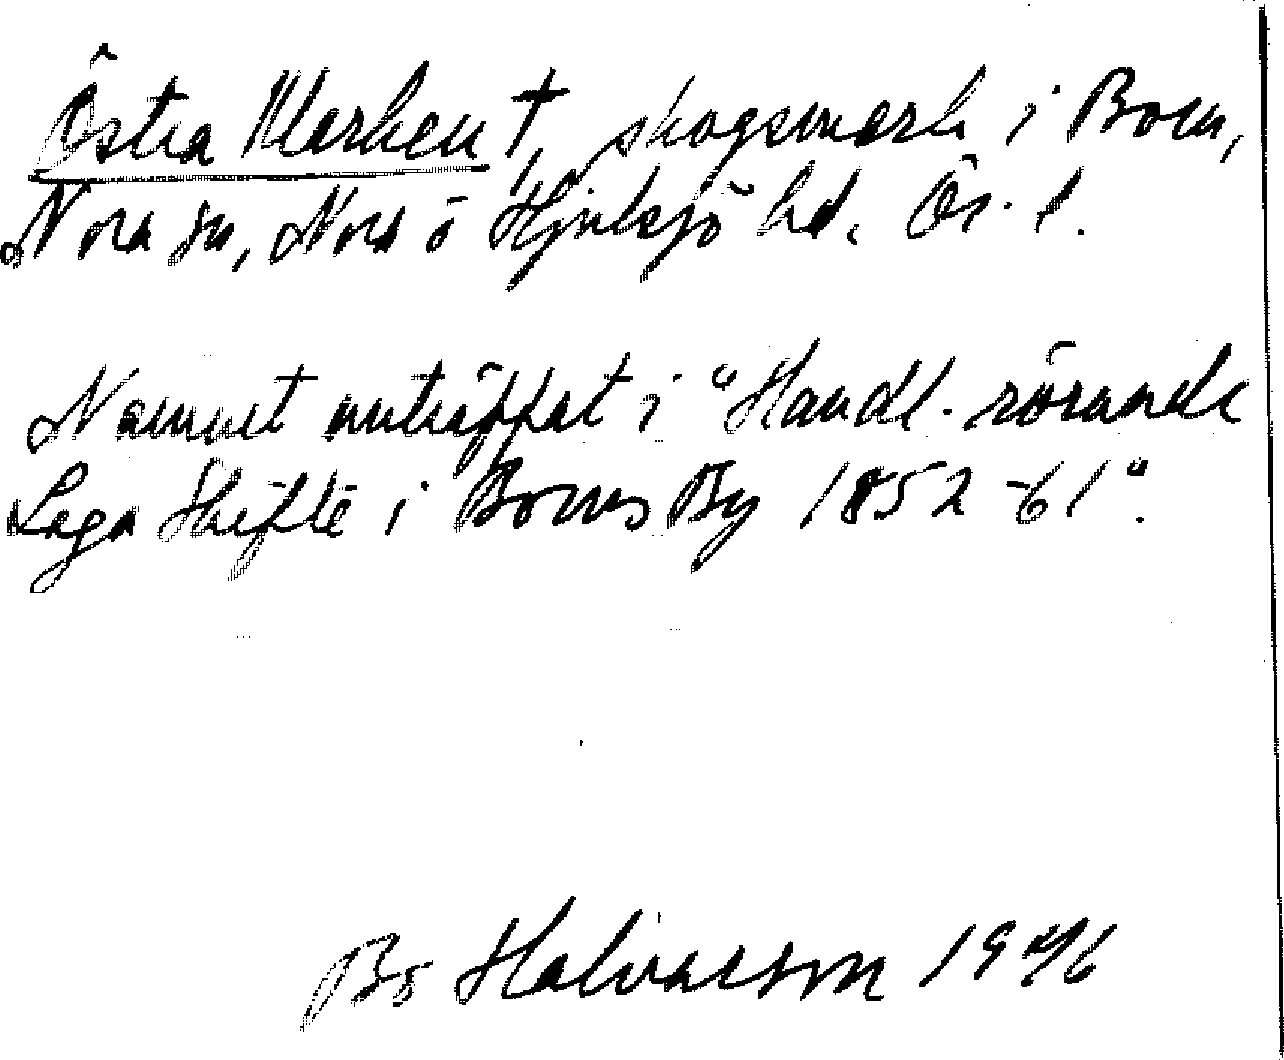 Östra Marken †, skogsmark i Born,
Nora sn, Nora o Hjulsjö hd. Ör. l.
Namnet anträffat i "Handl. rörande
Laga Skifte i Borns By 1852-61".
Bo Halvarson 1946